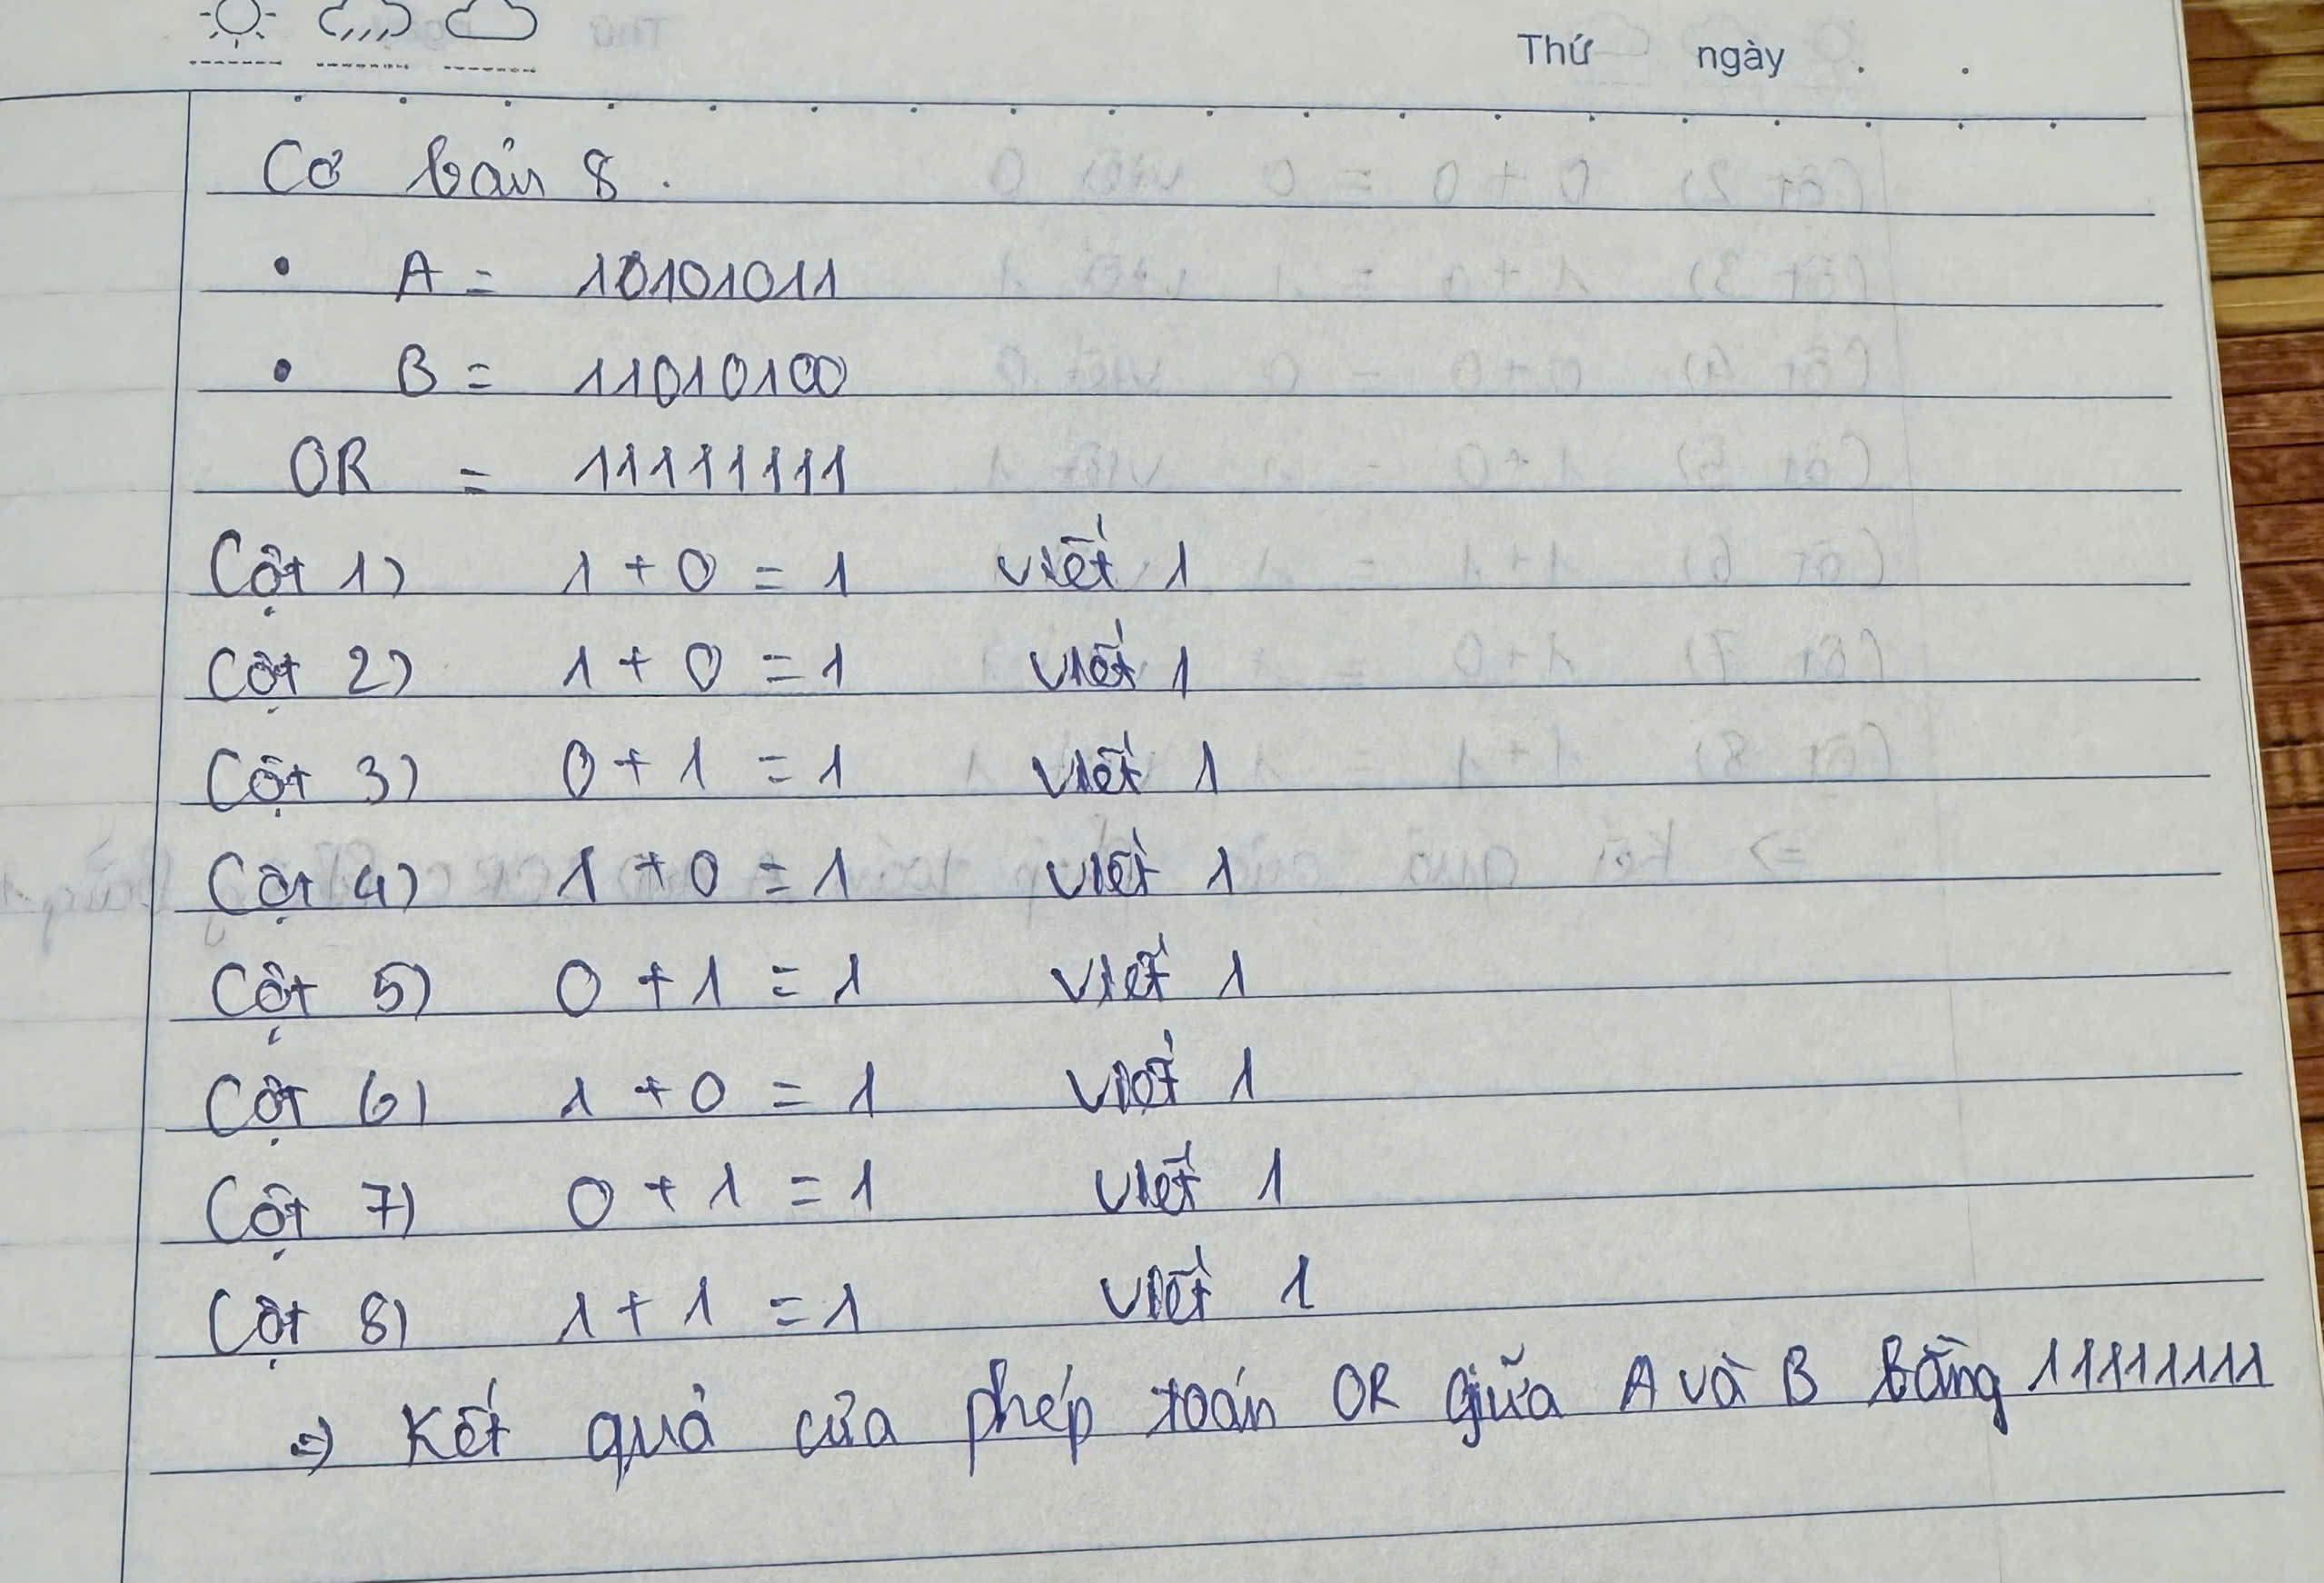 Thứ ngày
Cơ bản 8.
• A = 10101011
• B = 11010100
OR = 11111111
Cột 1) 1 + 0 = 1 viết 1
Cột 2) 1 + 0 = 1 viết 1
Cột 3) 0 + 1 = 1 viết 1
Cột 4) 1 + 0 = 1 viết 1
Cột 5) 0 + 1 = 1 viết 1
Cột 6) 1 + 0 = 1 viết 1
Cột 7) 0 + 1 = 1 viết 1
Cột 8) 1 + 1 = 1 viết 1
=> Kết quả của phép toán OR giữa A và B bằng 11111111